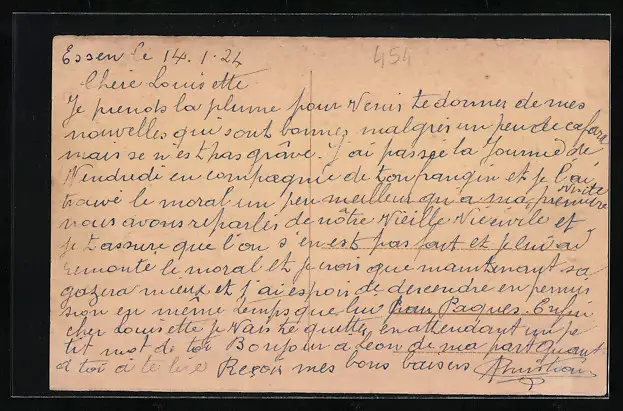 Essen le 14.1.24
454
Chère Louisette
Je prends la plume pour venir te donner de mes
nouvelles qui sont bonnes malgrès un peu de cafard
mais se n'est pas grâve. J'ai passée la Journée de
Vendredi en compagnie de ton pangin et je l'ai
trouvé le moral un peu meilleur qu'a ma première
visite
nous avons reparlés de nôtre Vieille Vie civile et
je t'assure que l'on s'en est pas fait et je lui ai
remonté le moral et je crois que maintenant sa
gazera mieux et j'ai espoir de descendre en permis
sion en même temps que lui pour Paques. Enfin
cher Louisette je vais te quitter en attendant un pe
tit mot de toi Bonjour a Leon de ma part quant
a toi a te lire Reçois mes bons baisers